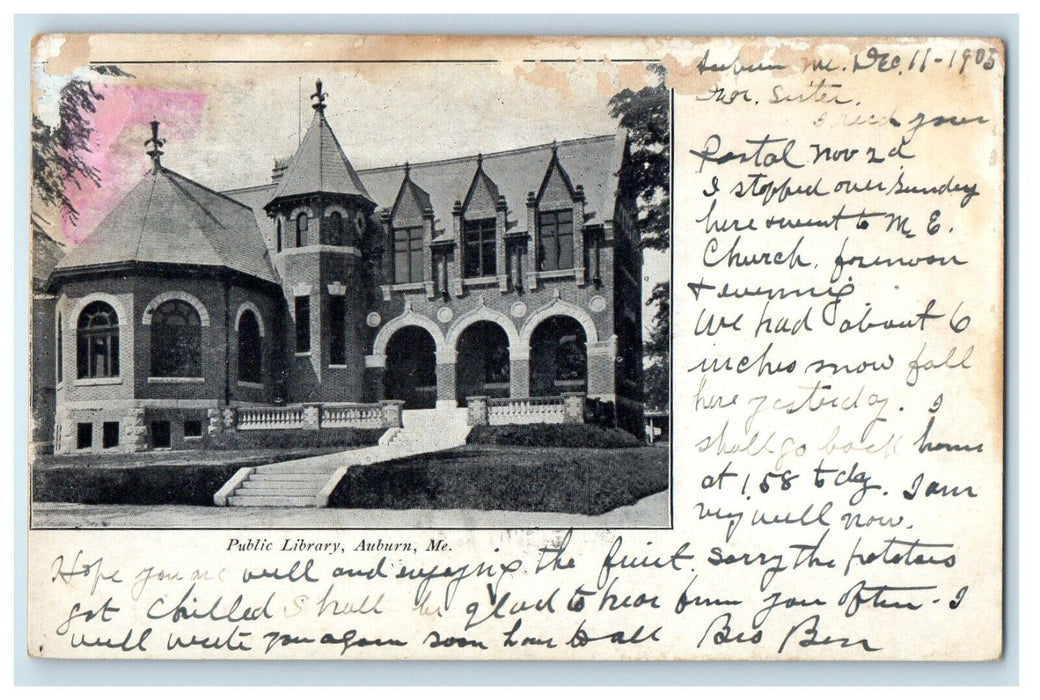 Auburn Me. Dec. 11-1905
Sister.
I recd your
Postal Nov 2d
I stopped over Sunday
here & went to M. E.
Church, forenoon
& evening
We had about 6
inches snow fall
here yesterday. I
shall go back home
at 1,58 tdy. I am
very well now.
Public Library, Auburn, Me.
Hope you are well and enjoying the fruit. Sorry the potatoes
got chilled Shall be glad to hear from you often. I
will write you again soon love to all Bro Ben